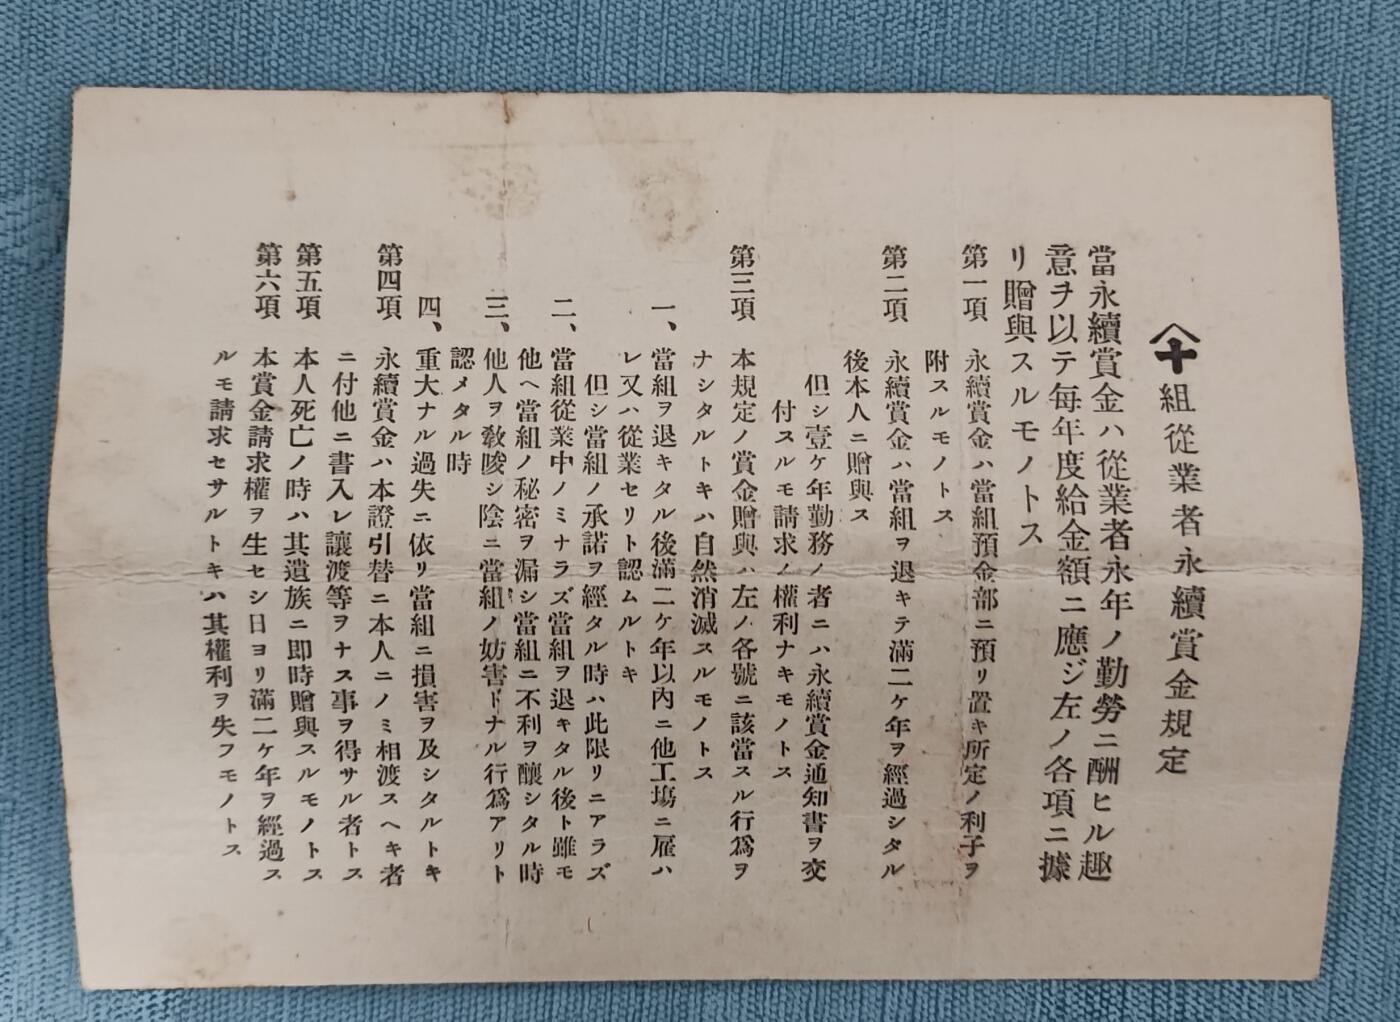 𠆢十組從業者永續賞金規定
當永續賞金ハ從業者永年ノ勤勞ニ酬ヒル趣
意ヲ以テ每年度給金額ニ應ジ左ノ各項ニ據
リ贈與スルモノトス
第一項 永續賞金ハ當組預金部ニ預リ置キ所定ノ利子ヲ
附スルモノトス
第二項 永續賞金ハ當組ヲ退キテ滿二ケ年ヲ經過シタル
後本人ニ贈與ス
但シ壹ケ年勤務ノ者ニハ永續賞金通知書ヲ交
付スルモ請求ノ權利ナキモノトス
第三項 本規定ノ賞金贈與ハ左ノ各號ニ該當スル行爲ヲ
ナシタルトキハ自然消滅スルモノトス
一、當組ヲ退キタル後滿二ケ年以內ニ他工塲ニ雇ハ
レ又ハ從業セリト認ムルトキ
但シ當組ノ承諾ヲ經タル時ハ此限リニアラズ
二、當組從業中ノミナラズ當組ヲ退キタル後ト雖モ
他ヘ當組ノ秘密ヲ漏シ當組ニ不利ヲ釀シタル時
三、他人ヲ敎唆シ陰ニ當組ノ妨害トナル行爲アリト
認メタル時
四、重大ナル過失ニ依リ當組ニ損害ヲ及シタルトキ
第四項 永續賞金ハ本證引替ニ本人ニノミ相渡スヘキ者
ニ付他ニ書入レ讓渡等ヲナス事ヲ得サル者トス
第五項 本人死亡ノ時ハ其遺族ニ即時贈與スルモノトス
第六項 本賞金請求權ヲ生セシ日ヨリ滿二ケ年ヲ經過ス
ルモ請求セサルトキハ其權利ヲ失フモノトス